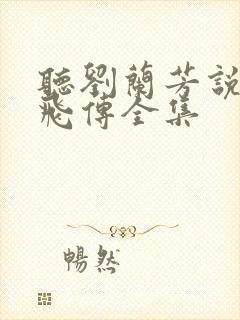 聽劉蘭芳說
飛傳全集
暢然